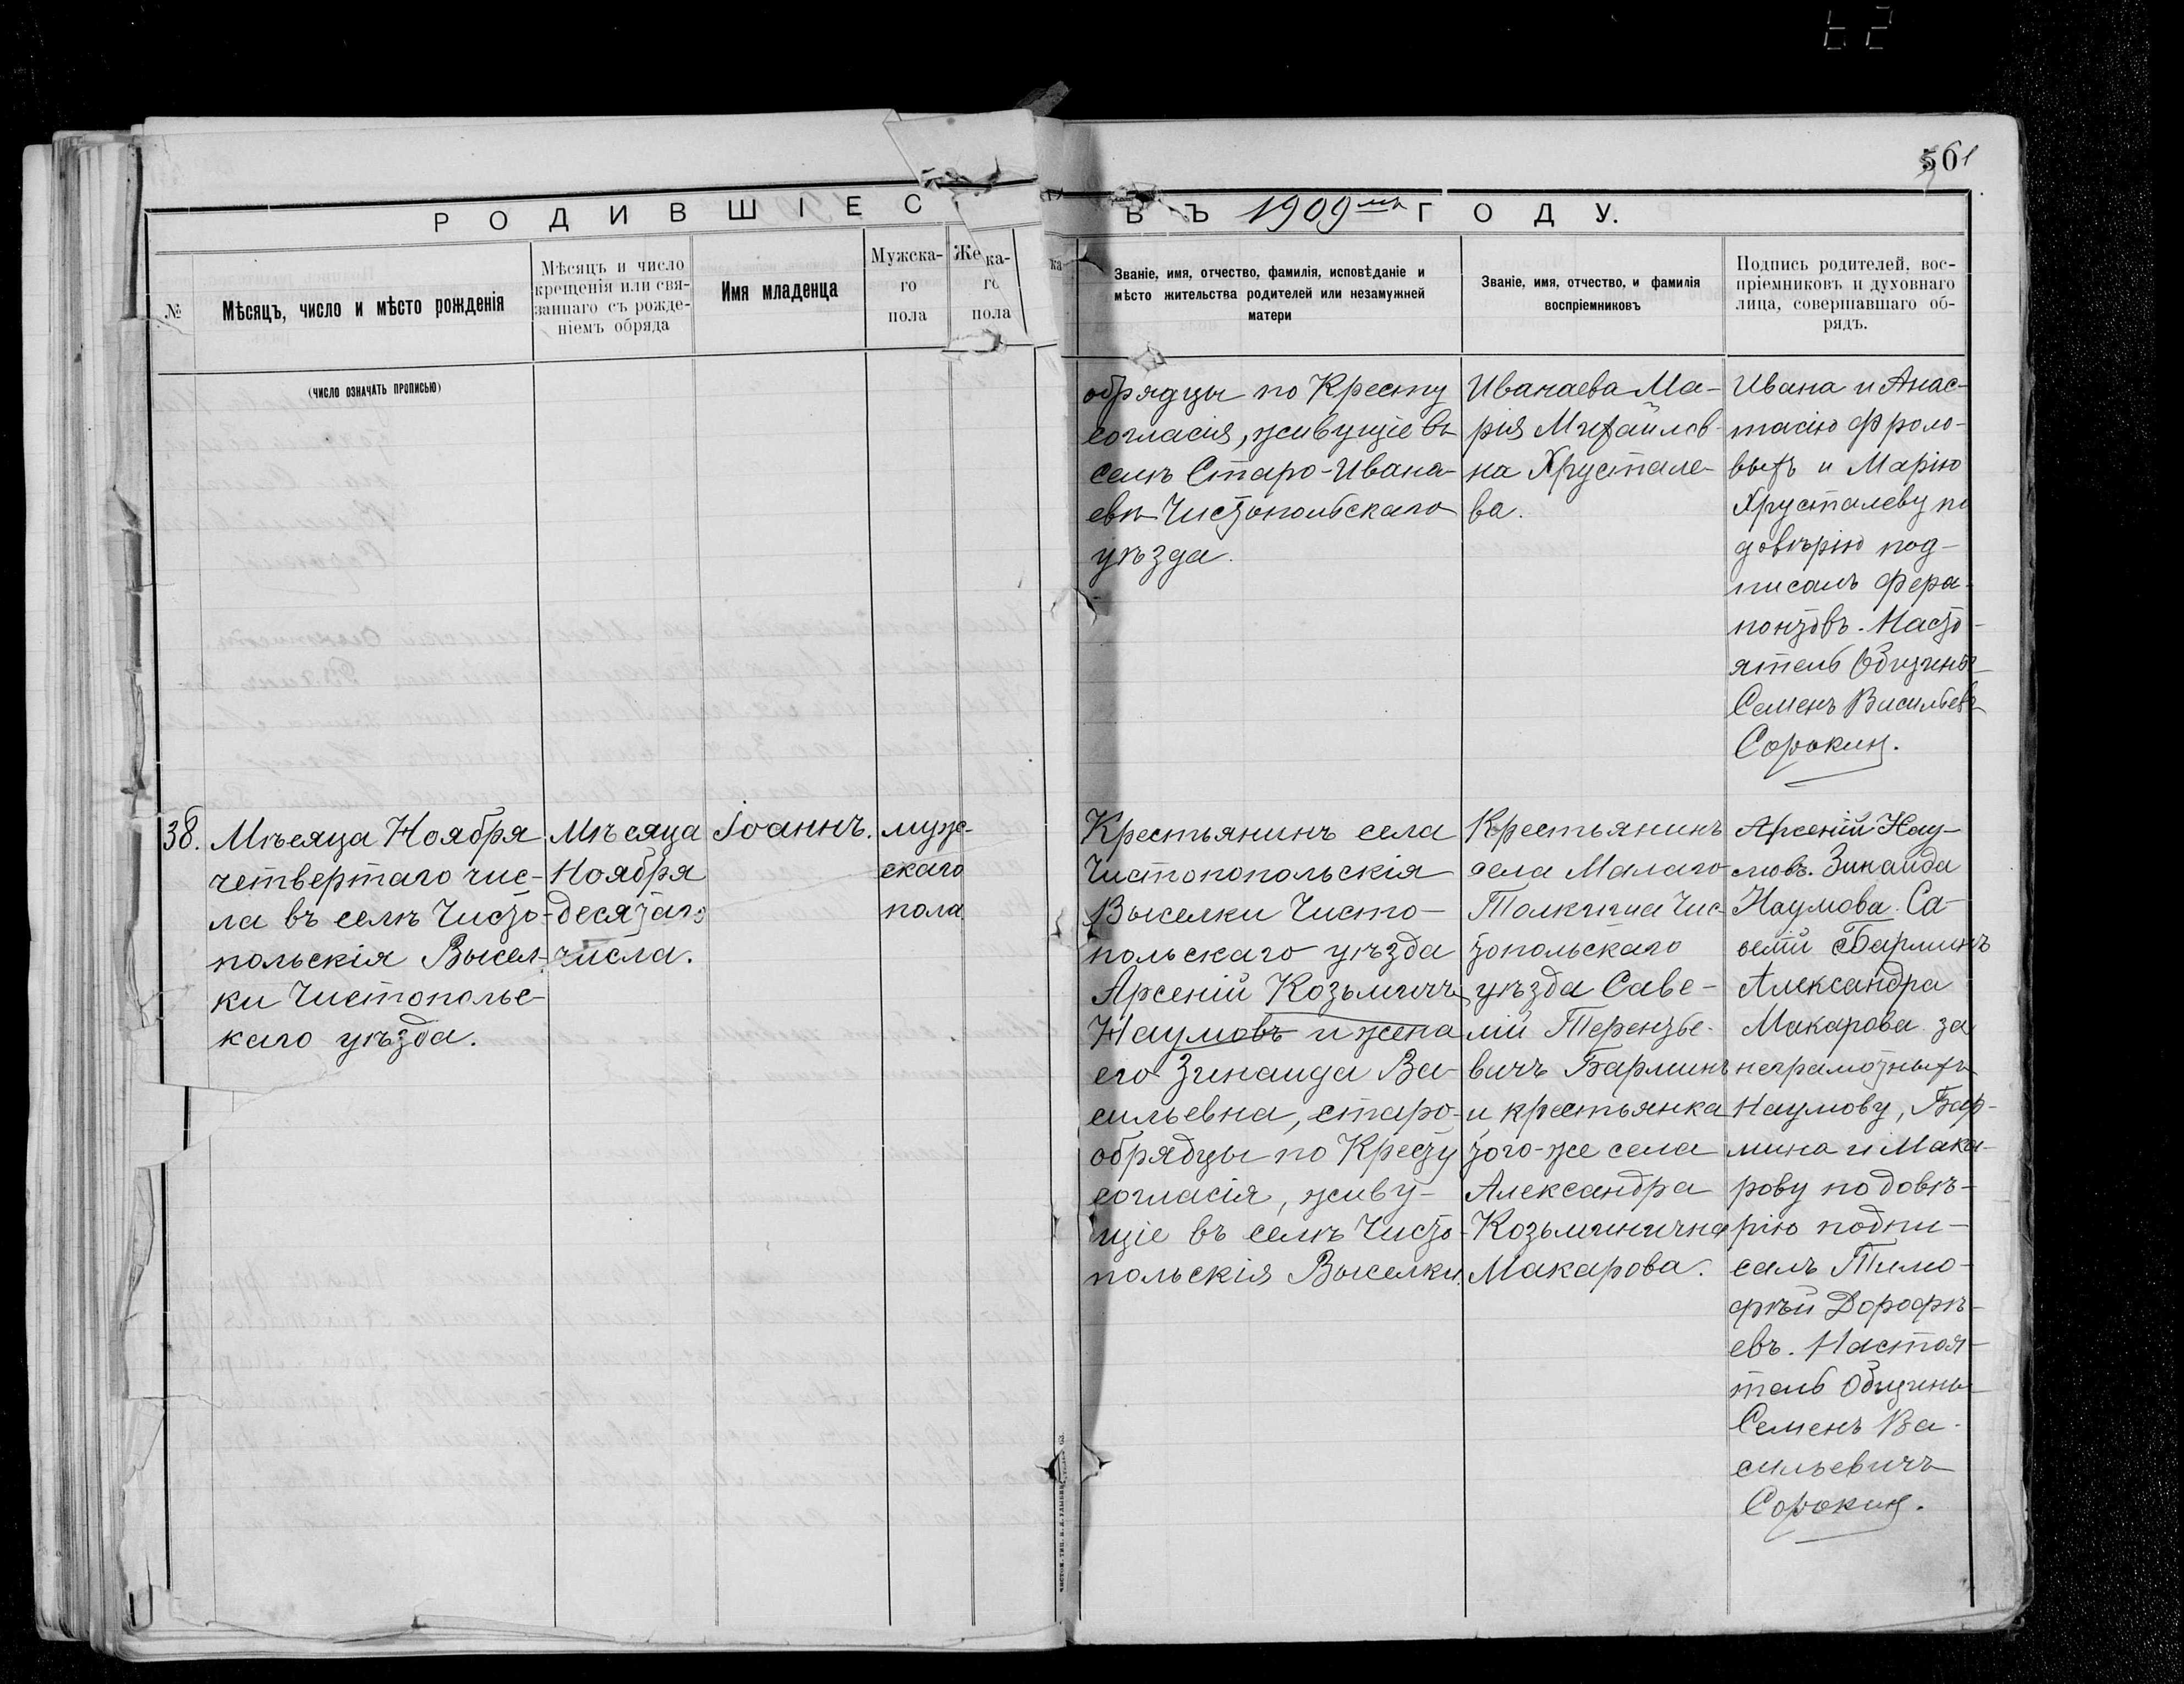 561
РОДИВШІЕС
ВЪ 1909мъ ГОДУ.
№
Мѣсяцъ, число и мѣсто рожденія
Мѣсяцъ и число
крещенія или свя-
заннаго съ рожде-
ніемъ обряда
Имя младенца
Мужска-
го
пола
Же ка-
го
пола
Званіе, имя, отчество, фамилія, исповѣданіе и
мѣсто жительства родителей или незамужней
матери
Званіе, имя, отчество, и фамилія
воспріемниковъ
Подпись родителей, вос-
пріемниковъ и духовнаго
лица, совершавшаго об-
рядъ.
(ЧИСЛО ОЗНАЧАТЬ ПРОПИСЬЮ)
обрядцы по Кресту
согласія, живущіе въ
селѣ Старо-Ивана-
евѣ Чистопольскаго
уѣзда.
Иванаева Ма-
рія Михайлов-
на Хрустале-
ва.
Ивана и Анас-
тасію Фроло-
выхъ и Марію
Хрусталеву по
довѣрію под-
писалъ Фера-
понтовъ. Насто-
ятель Общины
Семенъ Васильевъ
Сорокинъ.
38.
Мѣсяца Ноября
четвертаго чис-
ла въ селѣ Чисто-
польскія Высел-
ки Чистопольс-
каго уѣзда.
Мѣсяца
Ноября
десятаго
числа.
Іоаннъ.
муж-
скаго
пола
Крестьянинъ села
Чистопопольскія
Выселки Чисто-
польскаго уѣзда
Арсеній Козьмичъ
Наумовъ и жена
его Зинаида Ва-
сильевна, старо-
обрядцы по Кресту
согласія, живу-
щіе въ селѣ Чисто-
польскія Выселки.
Крестьянинъ
села Малаго
Толкиша Чис-
топольскаго
уѣзда Саве-
лій Теренть е-
вичъ Барминъ
и крестьянка
того-же села
Александра
Козьминична
Макарова.
Арсеній Нау-
мовъ. Зинаида
Наумова. Са-
велій Барминъ
Александра
Макарова за
неграмотныхъ
Наумову, Бар-
мина и Мака-
рову по довѣ-
рію подпи-
салъ Тимо-
фѣй Дорофѣ-
евъ. Настоя-
тель Общины
Семенъ Ва-
сильевичъ
Сорокинъ.